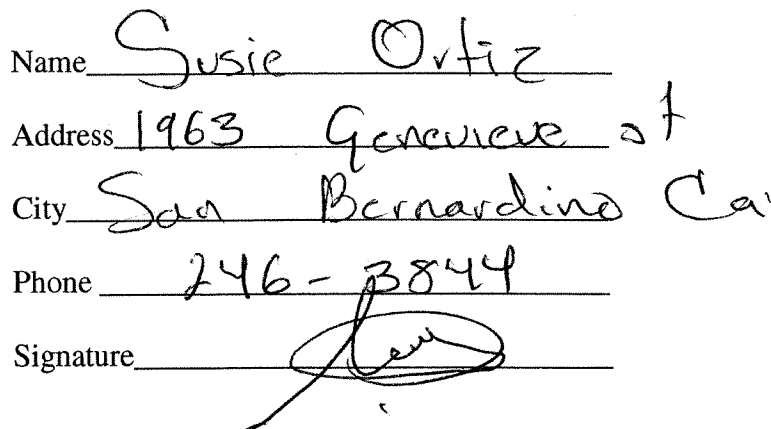 Name Susie Ortiz
Address 1963 Genevieve st
City San Bernardino Ca
Phone 246-3844
Signature